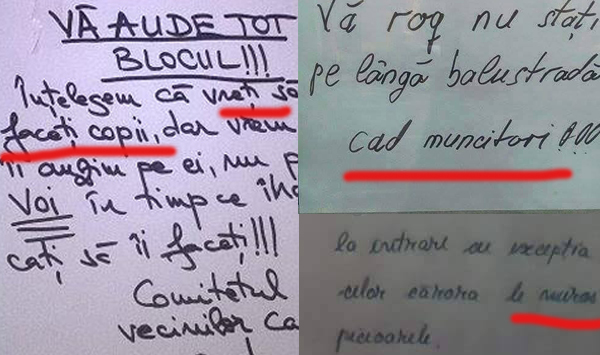 VĂ AUDE TOT
BLOCUL!!!
Înțelegem că vreți să
faceți copii, dar vrem
îi auzim pe ei, nu p
Voi în timp ce în
cați să îi faceți!!!
Comitetul
vecinilor Ca
Vă rog nu stați
pe lângă balustradă
cad muncitori!!!
la intrare cu excepția
celor cărora le miros
picioarele.